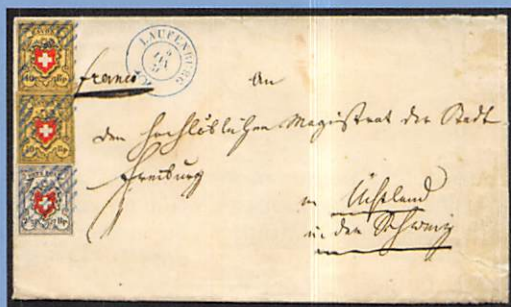 LAUFENBURG
franco
An
den hochlöblichen Magistrat der Stadt
Freiburg
im Üchtland
in der Schweiz